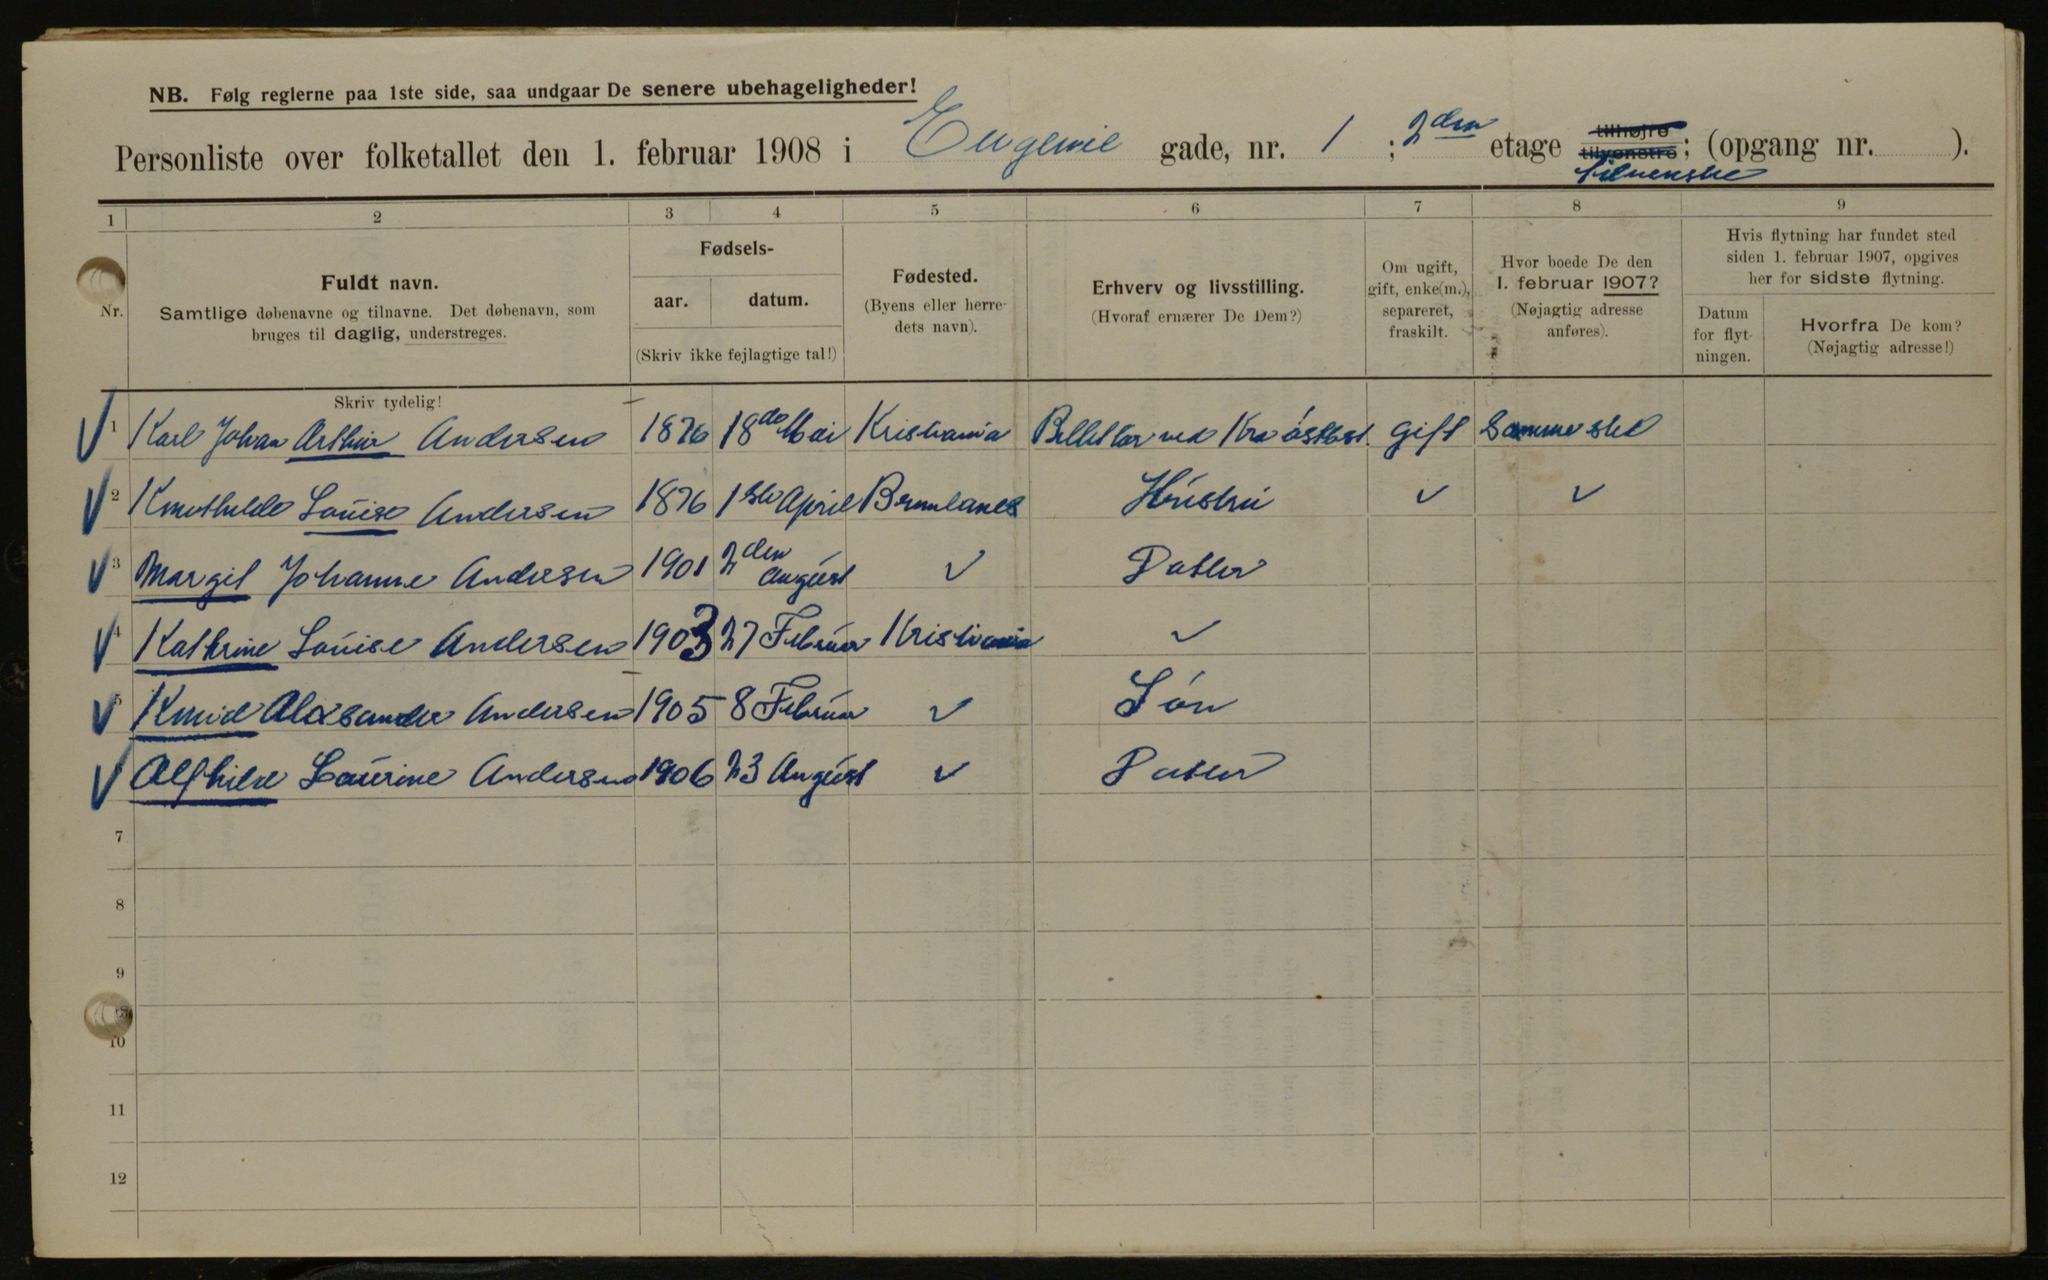 NB. Følg reglerne paa 1ste side, saa undgaar De senere ubehageligheder!
Personliste over folketallet den 1. februar 1908 i Eugenie gade, nr. 1 ; 2den etage tilhøjre tilvenstre; (opgang nr. ).
tilvenstre
1 2 3 4 5 6 7 8 9
Nr.
Fuldt navn.
Samtlige døbenavne og tilnavne. Det døbenavn, som
bruges til daglig, understreges.
Fødsels-
aar. datum.
(Skriv ikke fejlagtige tal!)
Fødested.
(Byens eller herre-
dets navn).
Erhverv og livsstilling.
(Hvoraf ernærer De Dem?)
Om ugift,
gift, enke(m.),
separeret,
fraskilt.
Hvor boede De den
1. februar 1907?
(Nøjagtig adresse
anføres).
Hvis flytning har fundet sted
siden 1. februar 1907, opgives
her for sidste flytning.
Datum
for flyt-
ningen.
Hvorfra De kom?
(Nøjagtig adresse!)
Skriv tydelig!
1 Karl Johan Arthur Andersen 1876 18de Mai Kristiania Billettør ved gift Samme sted
2 Louise Andersen 1876 1ste April Brunlanes Hustru ✓ ✓
3 Margit Johanne Andersen 1901 2den August ✓ Datter
4 Kathrine Louise Andersen 1903 27 Februar Kristiania ✓
5 Knud Alexsander Andersen 1905 8 Februar ✓ Søn
6 Alfhild Laurine Andersen 1906 23 August ✓ Datter
7
8
9
10
11
12